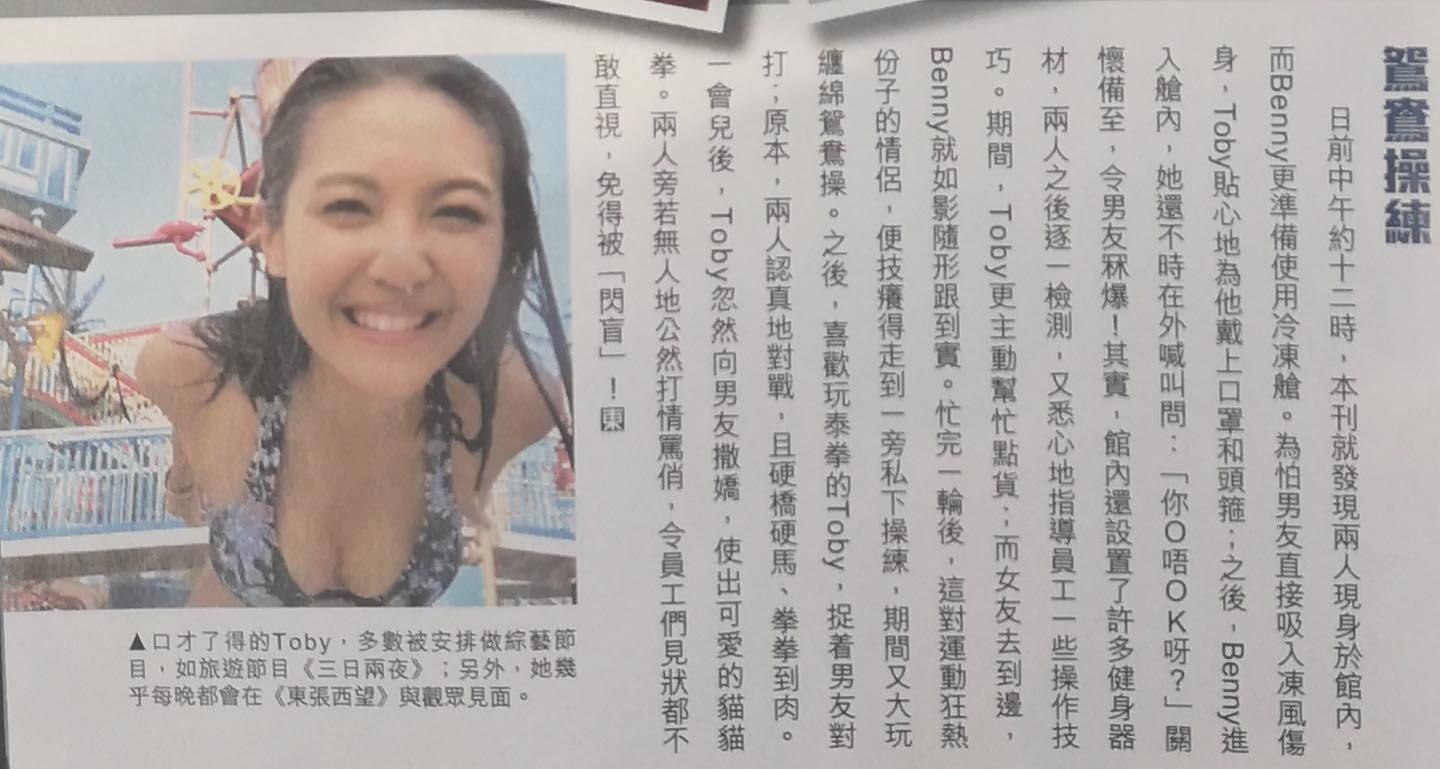 鴛鴦操練
日前中午約十二時，本刊就發現兩人現身於館內，
而Benny更準備使用冷凍艙。為怕男友直接吸入凍風傷
身，Toby貼心地為他戴上口罩和頭箍；之後，Benny進
入艙內，她還不時在外喊叫問：「你O唔OK呀？」關
懷備至，令男友冧爆！其實，館內還設置了許多健身器
材，兩人之後逐一檢測，又悉心地指導員工一些操作技
巧。期間，Toby更主動幫忙點貨；而女友去到邊，
Benny就如影隨形跟到實。忙完一輪後，這對運動狂熱
份子的情侶，便技癢得走到一旁私下操練，期間又大玩
纏綿鴛鴦操。之後，喜歡玩泰拳的Toby，捉着男友對
打；原本，兩人認真地對戰，且硬橋硬馬、拳拳到肉。
一會兒後，Toby忽然向男友撒嬌，使出可愛的貓貓
拳。兩人旁若無人地公然打情罵俏，令員工們見狀都不
敢直視，免得被「閃盲」！東
▲口才了得的Toby，多數被安排做綜藝節
目，如旅遊節目《三日兩夜》；另外，她幾
乎每晚都會在《東張西望》與觀眾見面。